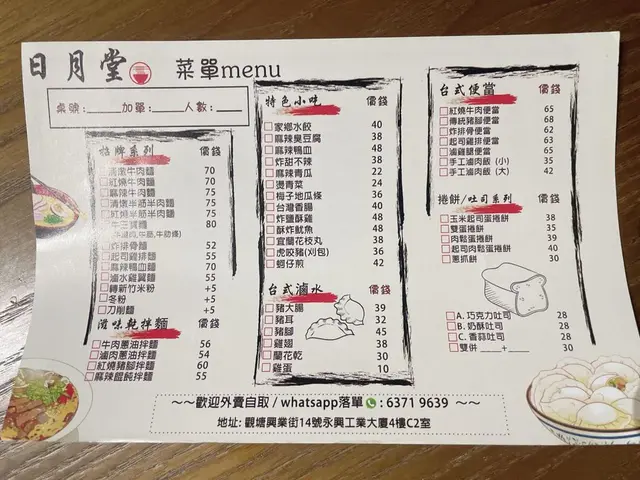 日月堂 菜單menu
桌號:______ 加單:______ 人數:____
招牌系列 價錢
清燉牛肉麵 70
紅燒牛肉麵 70
麻辣牛肉麵 75
清燉半筋半肉麵 75
紅燒半筋半肉麵 75
牛三寶麵 80
炸排骨麵 52
起司雞排麵 55
麻辣鴨血麵 70
滷水雞翼麵 55
轉新竹米粉 +5
冬粉 +5
刀削麵 +5
滋味乾拌麵 價錢
牛肉蔥油拌麵 56
滷肉蔥油拌麵 54
紅燒豬腳拌麵 60
麻辣餛飩拌麵 55
特色小吃 價錢
家鄉水餃 40
麻辣臭豆腐 38
麻辣鴨血 48
炸甜不辣 38
麻辣青瓜 22
燙青菜 24
梅子地瓜條 36
台灣香腸 40
炸鹽酥雞 48
酥炸魷魚 48
宜蘭花枝丸 38
虎咬豬(刈包) 36
蚵仔煎 42
台式滷水 價錢
豬大腸 39
豬耳 32
豬腳 45
雞翅 38
蘭花乾 30
雞蛋 10
台式便當 價錢
紅燒牛肉便當 65
傳統豬腳便當 68
炸排骨便當 62
起司雞排便當 63
滷雞腿便當 65
手工滷肉飯 (小) 35
手工滷肉飯 (大) 42
捲餅/吐司系列 價錢
玉米起司蛋捲餅 38
雙蛋捲餅 35
肉鬆蛋捲餅 39
起司肉蛋捲餅 40
蔥抓餅 30
A. 巧克力吐司 28
B. 奶酥吐司 28
C. 香蒜吐司 28
雙併 ____+____ 30
~~歡迎外賣自取 / whatsapp落單 : 6371 9639 ~~
地址: 觀塘興業街14號永興工業大廈4樓C2室